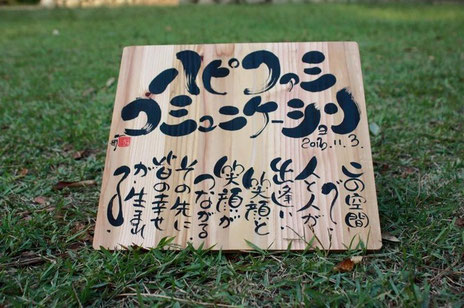 コミュニケーション
2016.11.3.
この空間
で
人と人が
出逢い
笑顔と
笑顔が
つながる
その先に
皆の幸せ
が生まれ
る